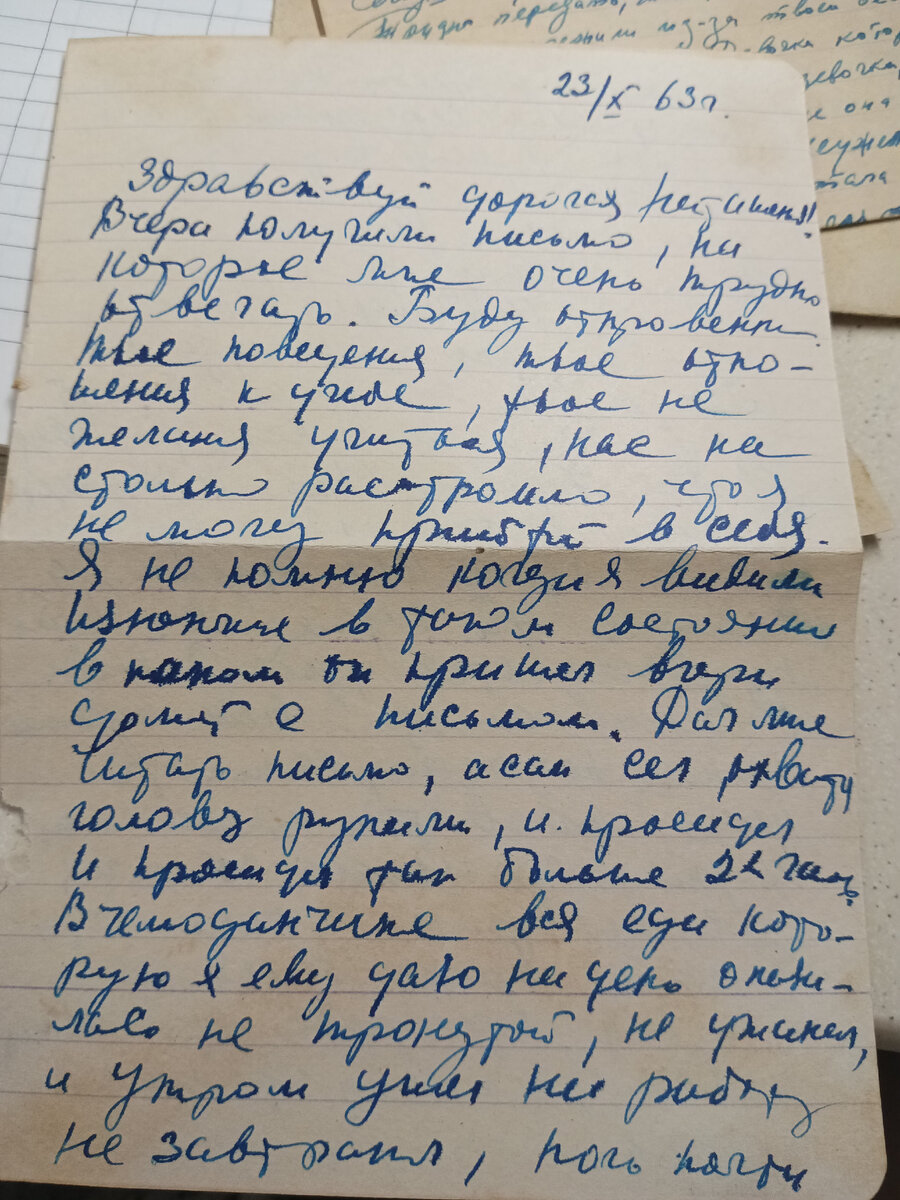 23/X 63г.
Здравствуй дорогая
Вчера получили письмо, на
которое мне очень трудно
отвечать. Буду откровенна
твое поведения, твое отно-
шения к учебе, твое не
желания учиться, нас на
столько расстроило, что я
не могу прийти в себя.
Я не помню когда я видила
в таком состоянии
в каком он пришел вчера
домой с письмом. Дал мне
читать письмо, а сам сел
голову руками, и просидел
и просидел так больше 2х час.
В чемоданчике вся еда кото-
рую я ему даю на день оказа-
лась не тронутой, не ужинал,
и утром ушел на работу
не завтракал, ночь почти
передать,
твоего
девочка,
она